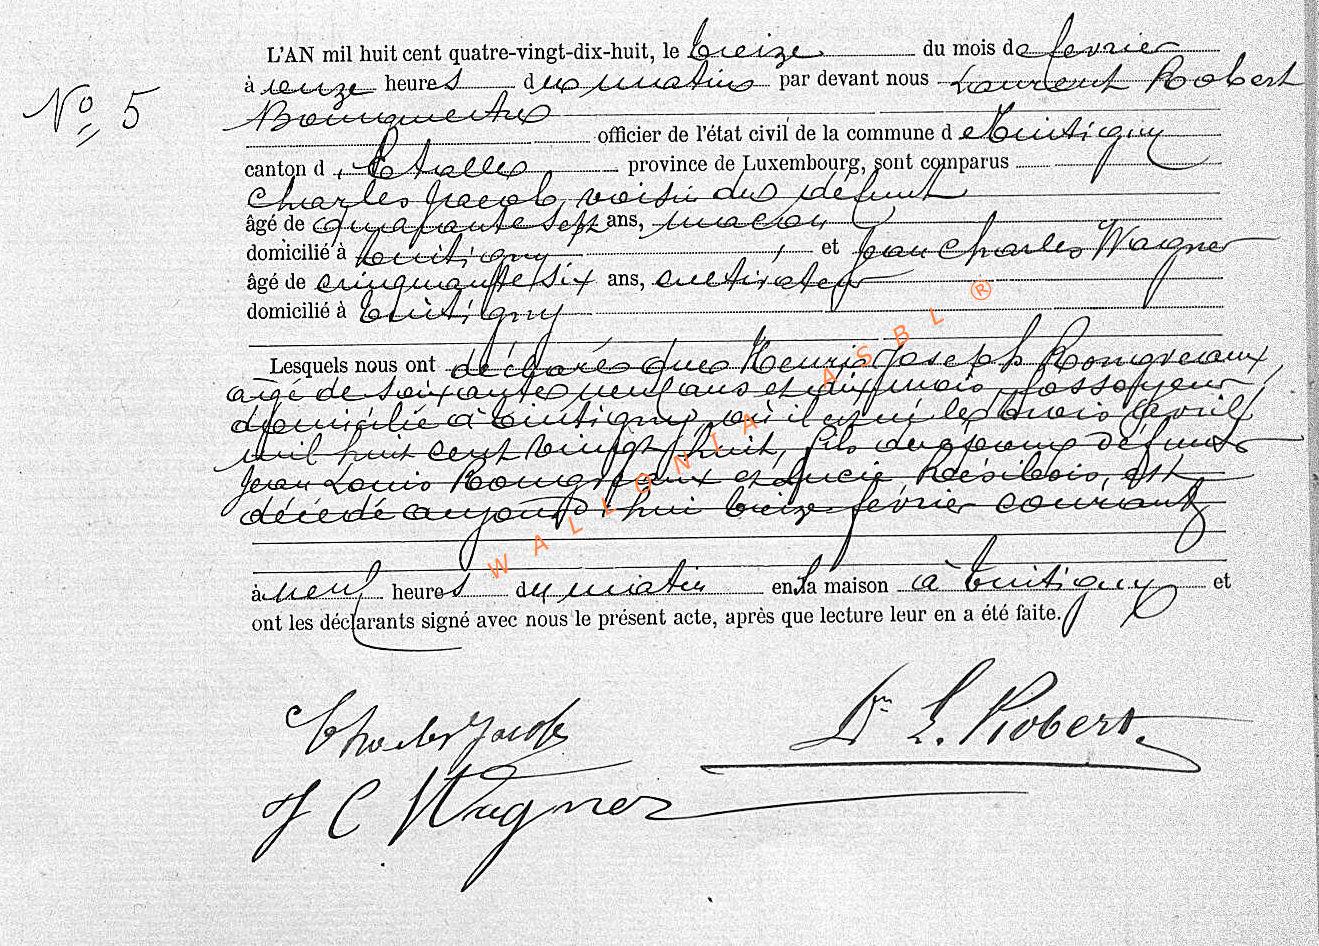 N° 5
L'AN mil huit cent quatre-vingt-dix-huit, le treize du mois de fevrier
à onze heures du matin par devant nous Laurent Robert
Bourgmestre
officier de l'état civil de la commune de Tintigny
canton d'Etalle province de Luxembourg, sont comparus
Charles Jacob, voisin du défunt
âgé de quarante sept ans, maçon,
domicilié à Tintigny, et Jean Charles Wagner
âgé de cinquante six ans, cultivateur
domicilié à Tintigny
Lesquels nous ont déclaré que Henri Joseph Rongveaux
âgé de soixante neuf ans et dix mois, fossoyeur,
domicilié à Tintigny, où il est né le trois avril
mil huit cent vingt huit, fils des époux défunts
Jean Louis Rongveaux et Lucie Désilbois, est
décédé aujourd'hui treize février courant
à neuf heures du matin en sa maison à Tintigny et
ont les déclarants signé avec nous le présent acte, après que lecture leur en a été faite.
Charles Jacob
Dr L. Robert.
J C Wagner
WALLONIA ASBL ®